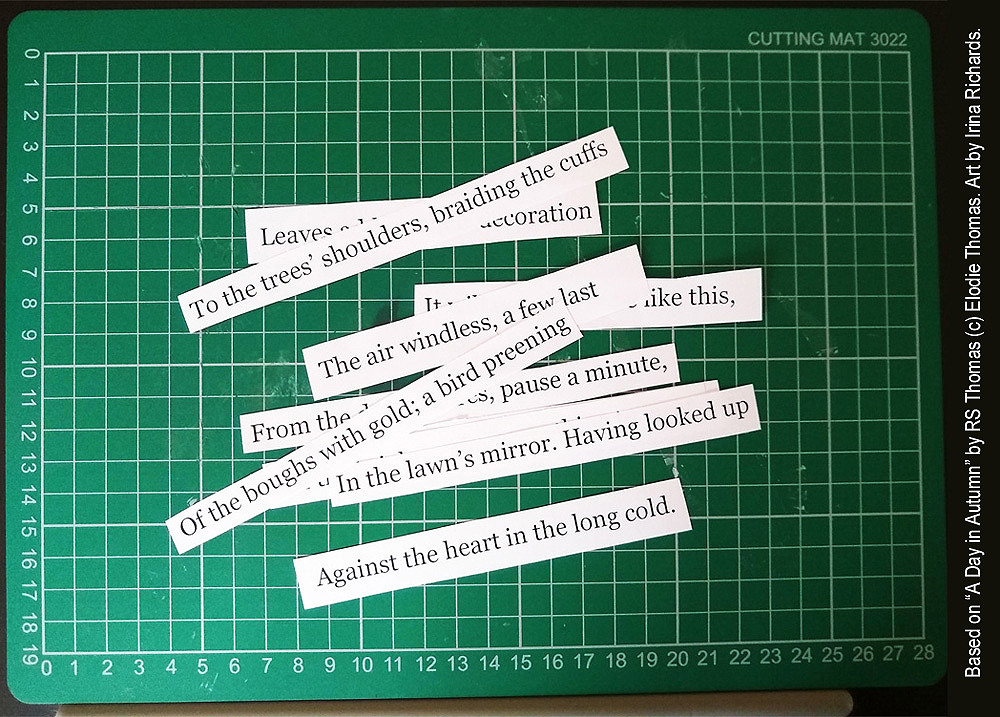 CUTTING MAT 3022
To the trees’ shoulders, braiding the cuffs
Leaves decoration
It like this,
The air windless, a few last
Of the boughs with gold; a bird preening
From the pause a minute,
In the lawn’s mirror. Having looked up
Against the heart in the long cold.
0 1 2 3 4 5 6 7 8 9 10 11 12 13 14 15 16 17 18 19
0 1 2 3 4 5 6 7 8 9 10 11 12 13 14 15 16 17 18 19 20 21 22 23 24 25 26 27 28
Based on “A Day in Autumn” by RS Thomas (c) Elodie Thomas. Art by Irina Richards.